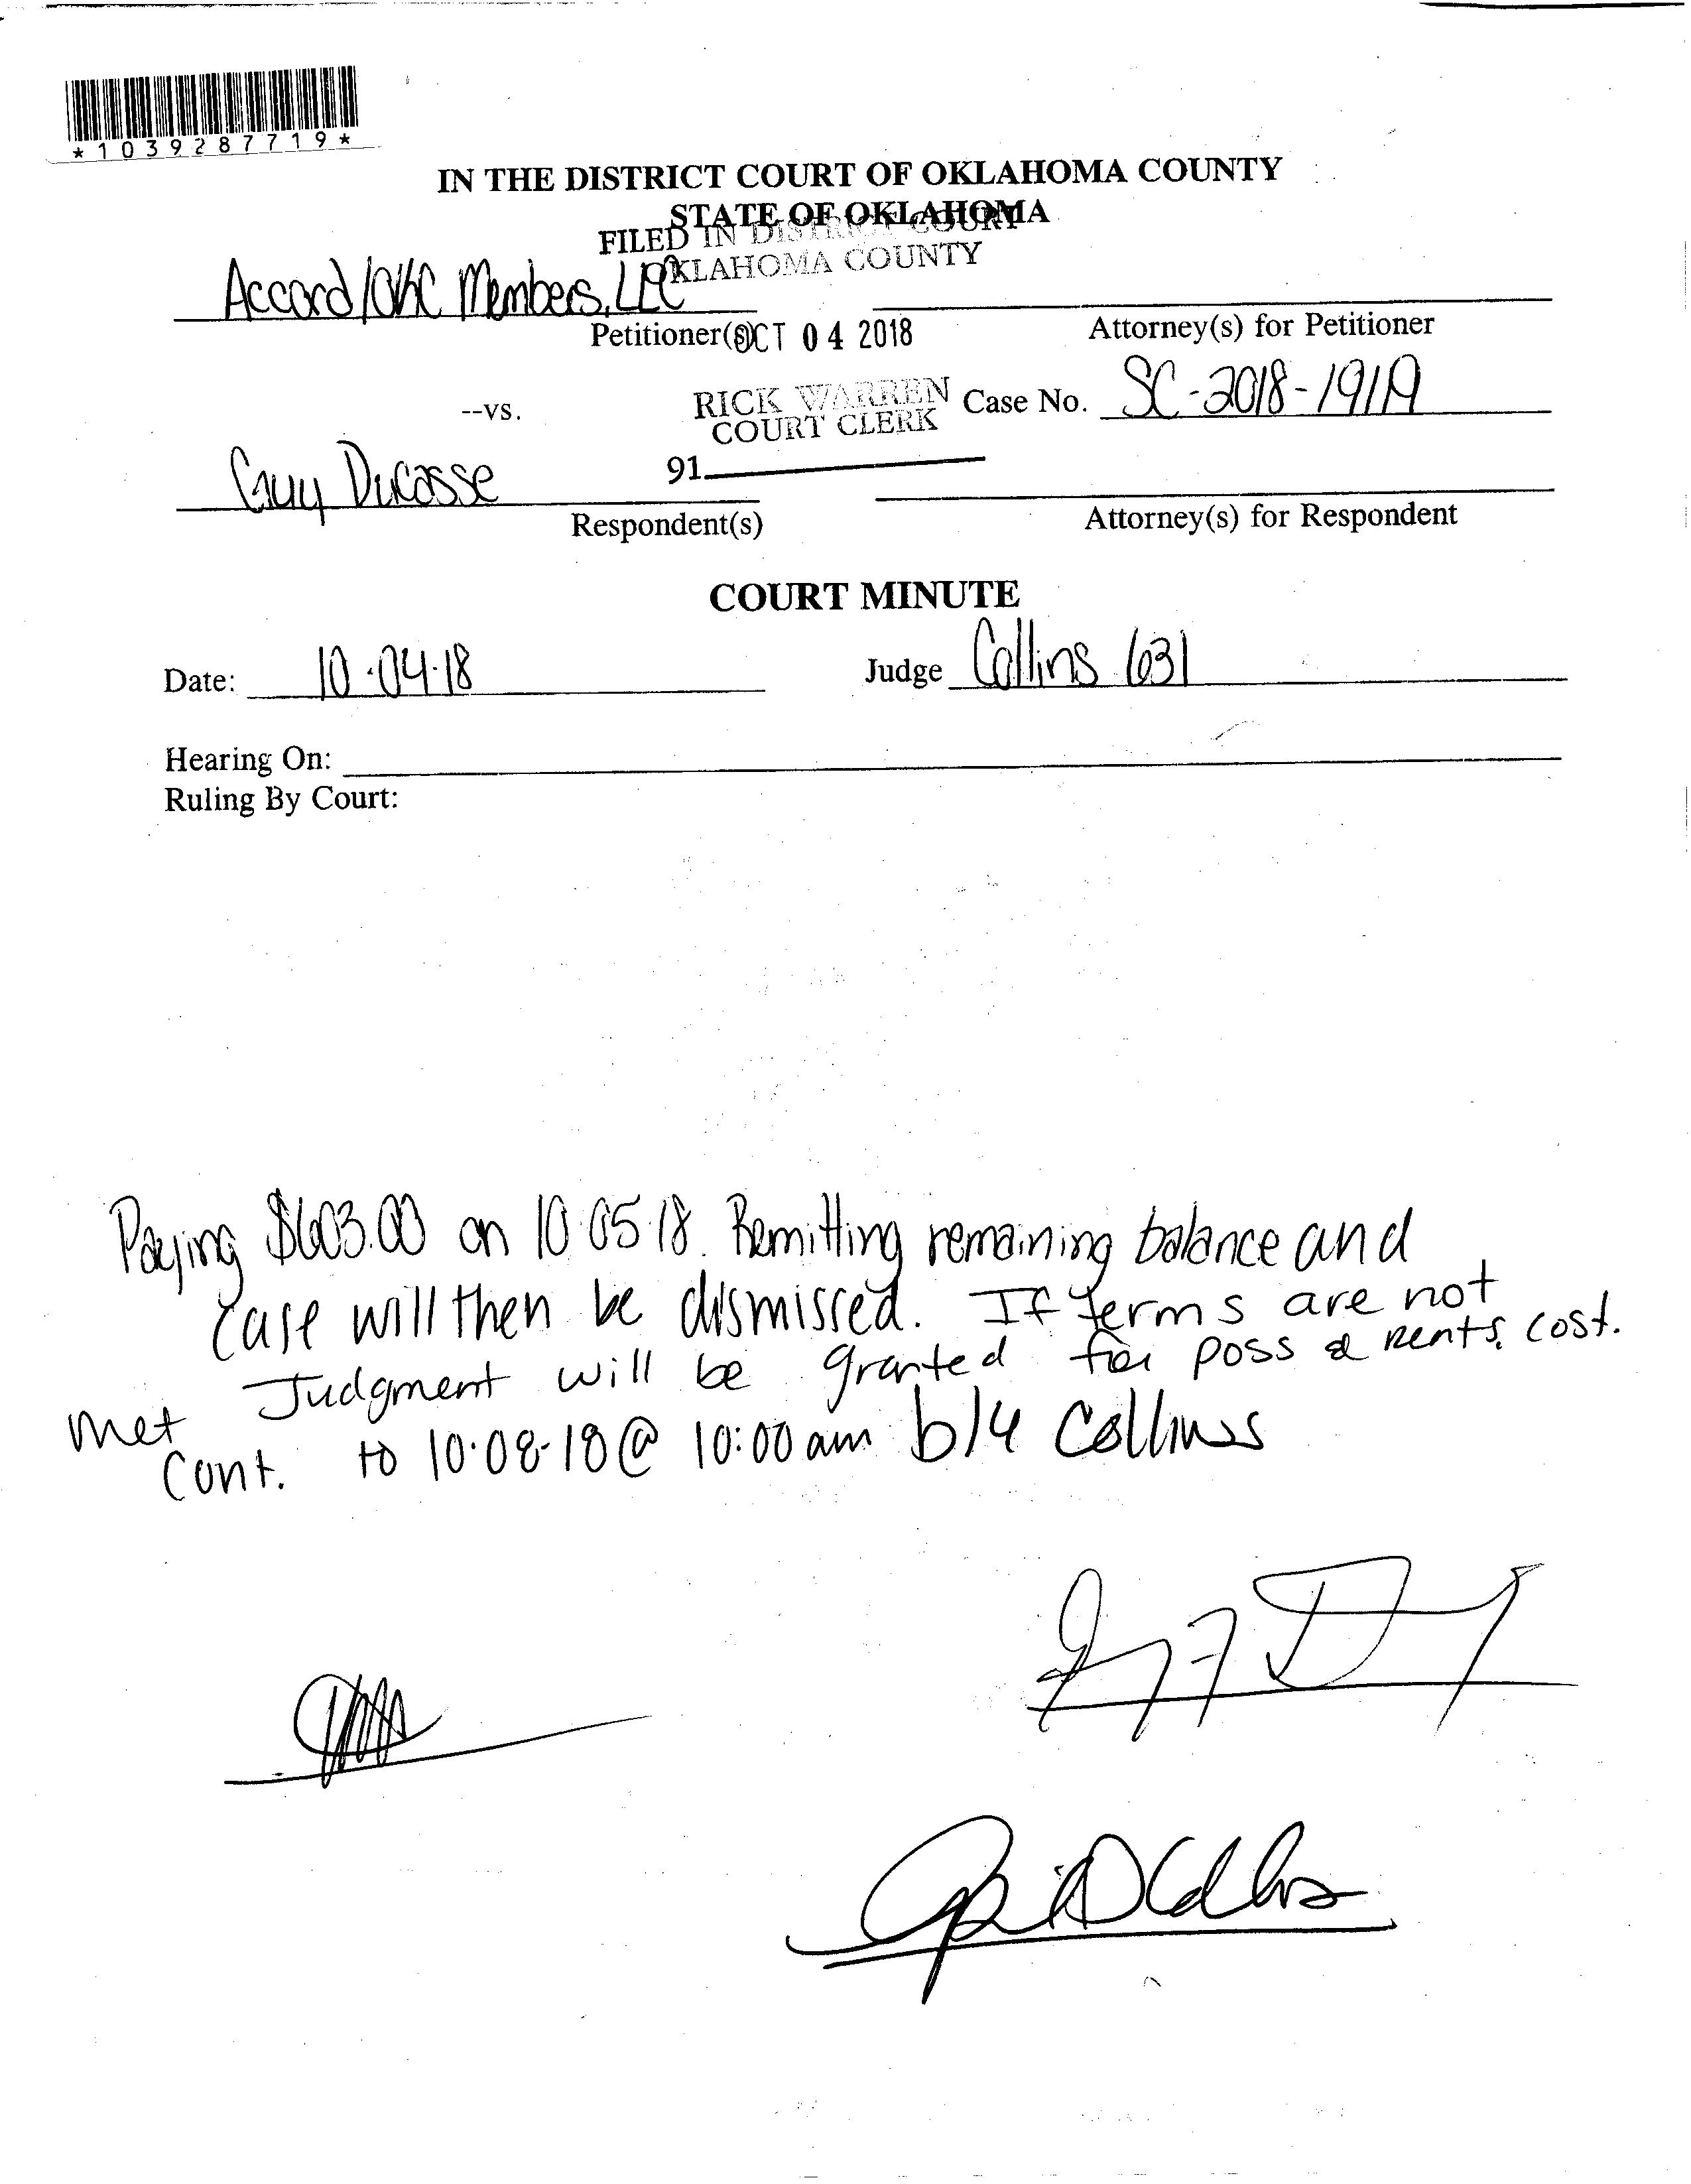 *1039287719*
IN THE DISTRICT COURT OF OKLAHOMA COUNTY
STATE OF OKLAHOMA
FILED IN DISTRICT COURT
OKLAHOMA COUNTY
Accord/OKC Members, LLC
Petitioner(s) Attorney(s) for Petitioner
OCT 04 2018
RICK WARREN
COURT CLERK
--vs. Case No. SC-2018-19119
91
Guy Ducasse
Respondent(s) Attorney(s) for Respondent
COURT MINUTE
Date: 10-04-18 Judge Collins 631
Hearing On:
Ruling By Court:
Paying $603.00 on 10-05-18. Remitting remaining balance and
case will then be dismissed. If terms are not
met Judgment will be granted for poss & rents, cost.
Cont. to 10-08-18 @ 10:00 am b/4 Collins